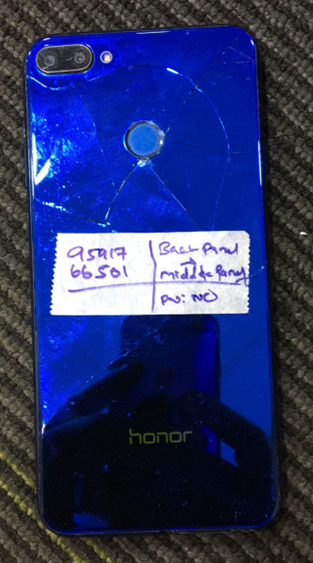 95917
66501
Back Panel
→
middle Panel
PW: NO
honor